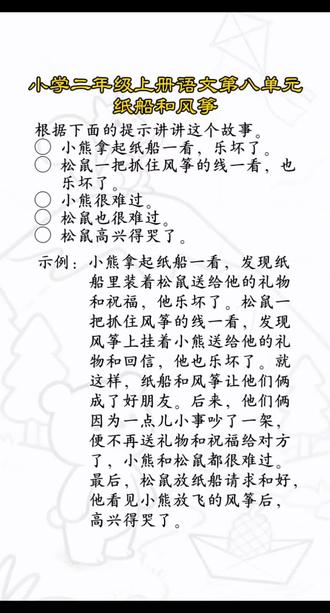 小学二年级上册语文第八单元
纸船和风筝
根据下面的提示讲讲这个故事。
○ 小熊拿起纸船一看,乐坏了。
○ 松鼠一把抓住风筝的线一看,也
乐坏了。
○ 小熊很难过。
○ 松鼠也很难过。
○ 松鼠高兴得哭了。
示例:小熊拿起纸船一看,发现纸
船里装着松鼠送给他的礼物
和祝福,他乐坏了。松鼠一
把抓住风筝的线一看,发现
风筝上挂着小熊送给他的礼
物和回信,他也乐坏了。就
这样,纸船和风筝让他们俩
成了好朋友。后来,他们俩
因为一点儿小事吵了一架,
便不再送礼物和祝福给对方
了,小熊和松鼠都很难过。
最后,松鼠放纸船请求和好,
他看见小熊放飞的风筝后,
高兴得哭了。